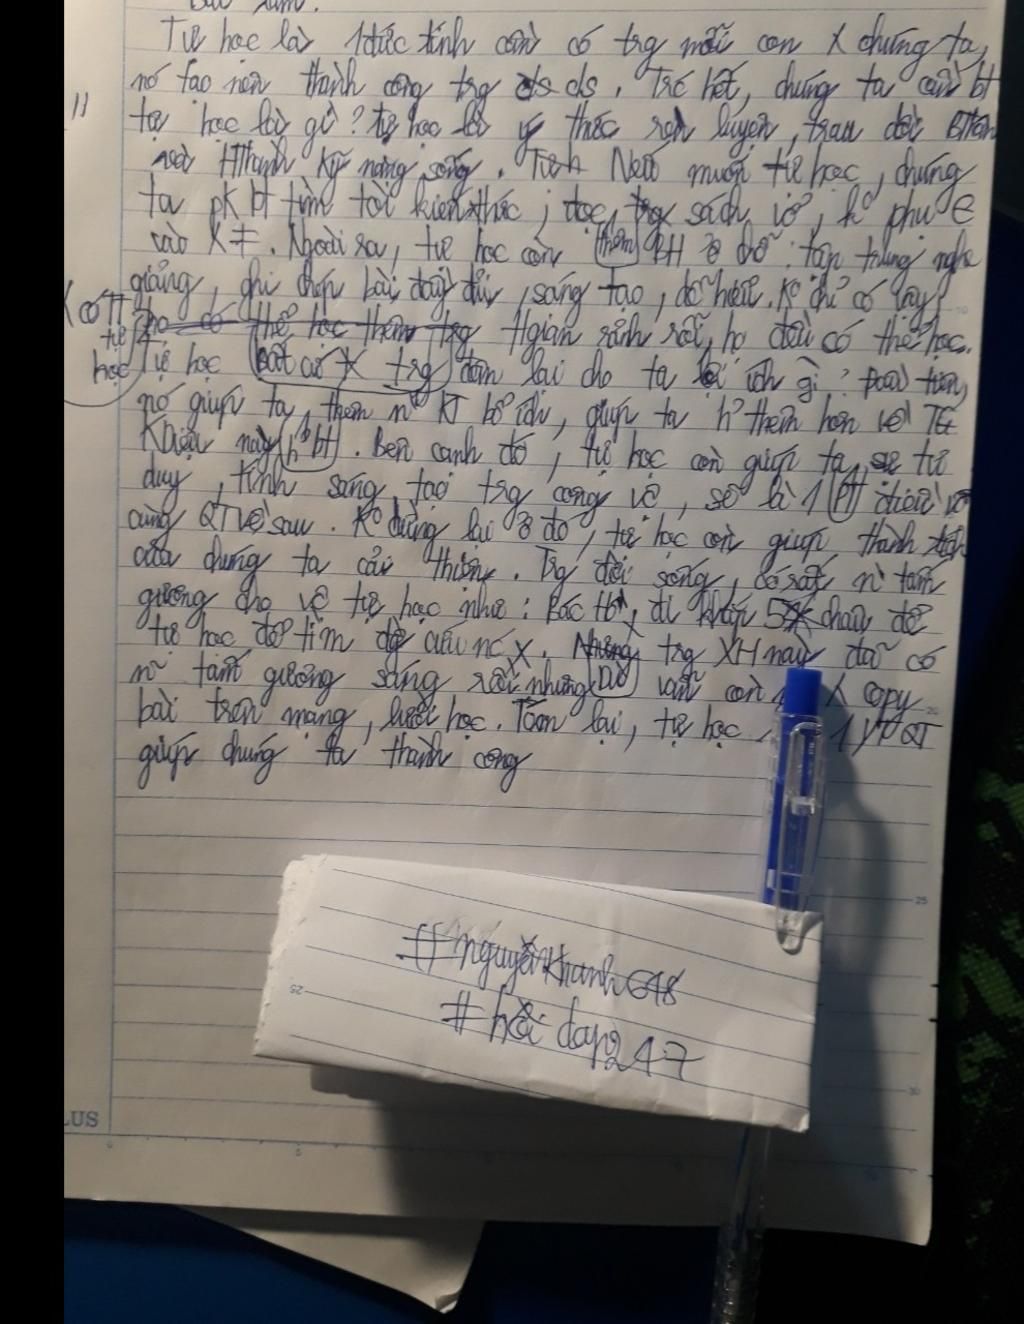 Tự học là 1 đức tính cần có trg mỗi con X chúng ta,
nó tạo nên thành công trg ds. Trc hết, chúng ta cần bt
11
tự học là gì? tự học là ý thức rèn luyện, trau dồi
và HThành kỹ năng sống. Nếu muốn tự học, chúng
ta pk bt tìm tòi kiến thức, đọc, trg sách vở, k° phụ
vào X ≠. Ngoài ra, tự học còn thêm ở đó: tập trung nghe
giảng, ghi chép bài đầy đủ, sáng tạo, dễ hiểu. K° chỉ có vậy
trg tgian rảnh rỗi, họ đều có thể học.
tự
học
Tự học bất cứ X trg đem lại cho ta lợi ích gì? Đầu tiên,
nó giúp ta thêm n` KT bổ ích, giúp ta h° thêm hơn về TG
này h° bt. Bên cạnh đó, tự học còn giúp ta tư
duy, tính sáng tạo trg công vc, sẽ là 1 điều vô
cùng QT về sau. K° dừng lại ở đó, tự học còn giúp thành tích
của chúng ta cải thiện. Trg đời sống, có rất n` tấm
gương cho về tự học như: Bác Hồ, đi khắp 5 châu để
tự học để tìm cứu nc. trg XH này đã có
n` tấm gương sáng rồi nhưng vẫn còn X copy
bài trên mạng, lười học. Tóm lại, tự học 1 QT
giúp chúng ta thành công
25
#nguyễnkhanh648
#hỏi đáp247
25
30
LUS
0
5